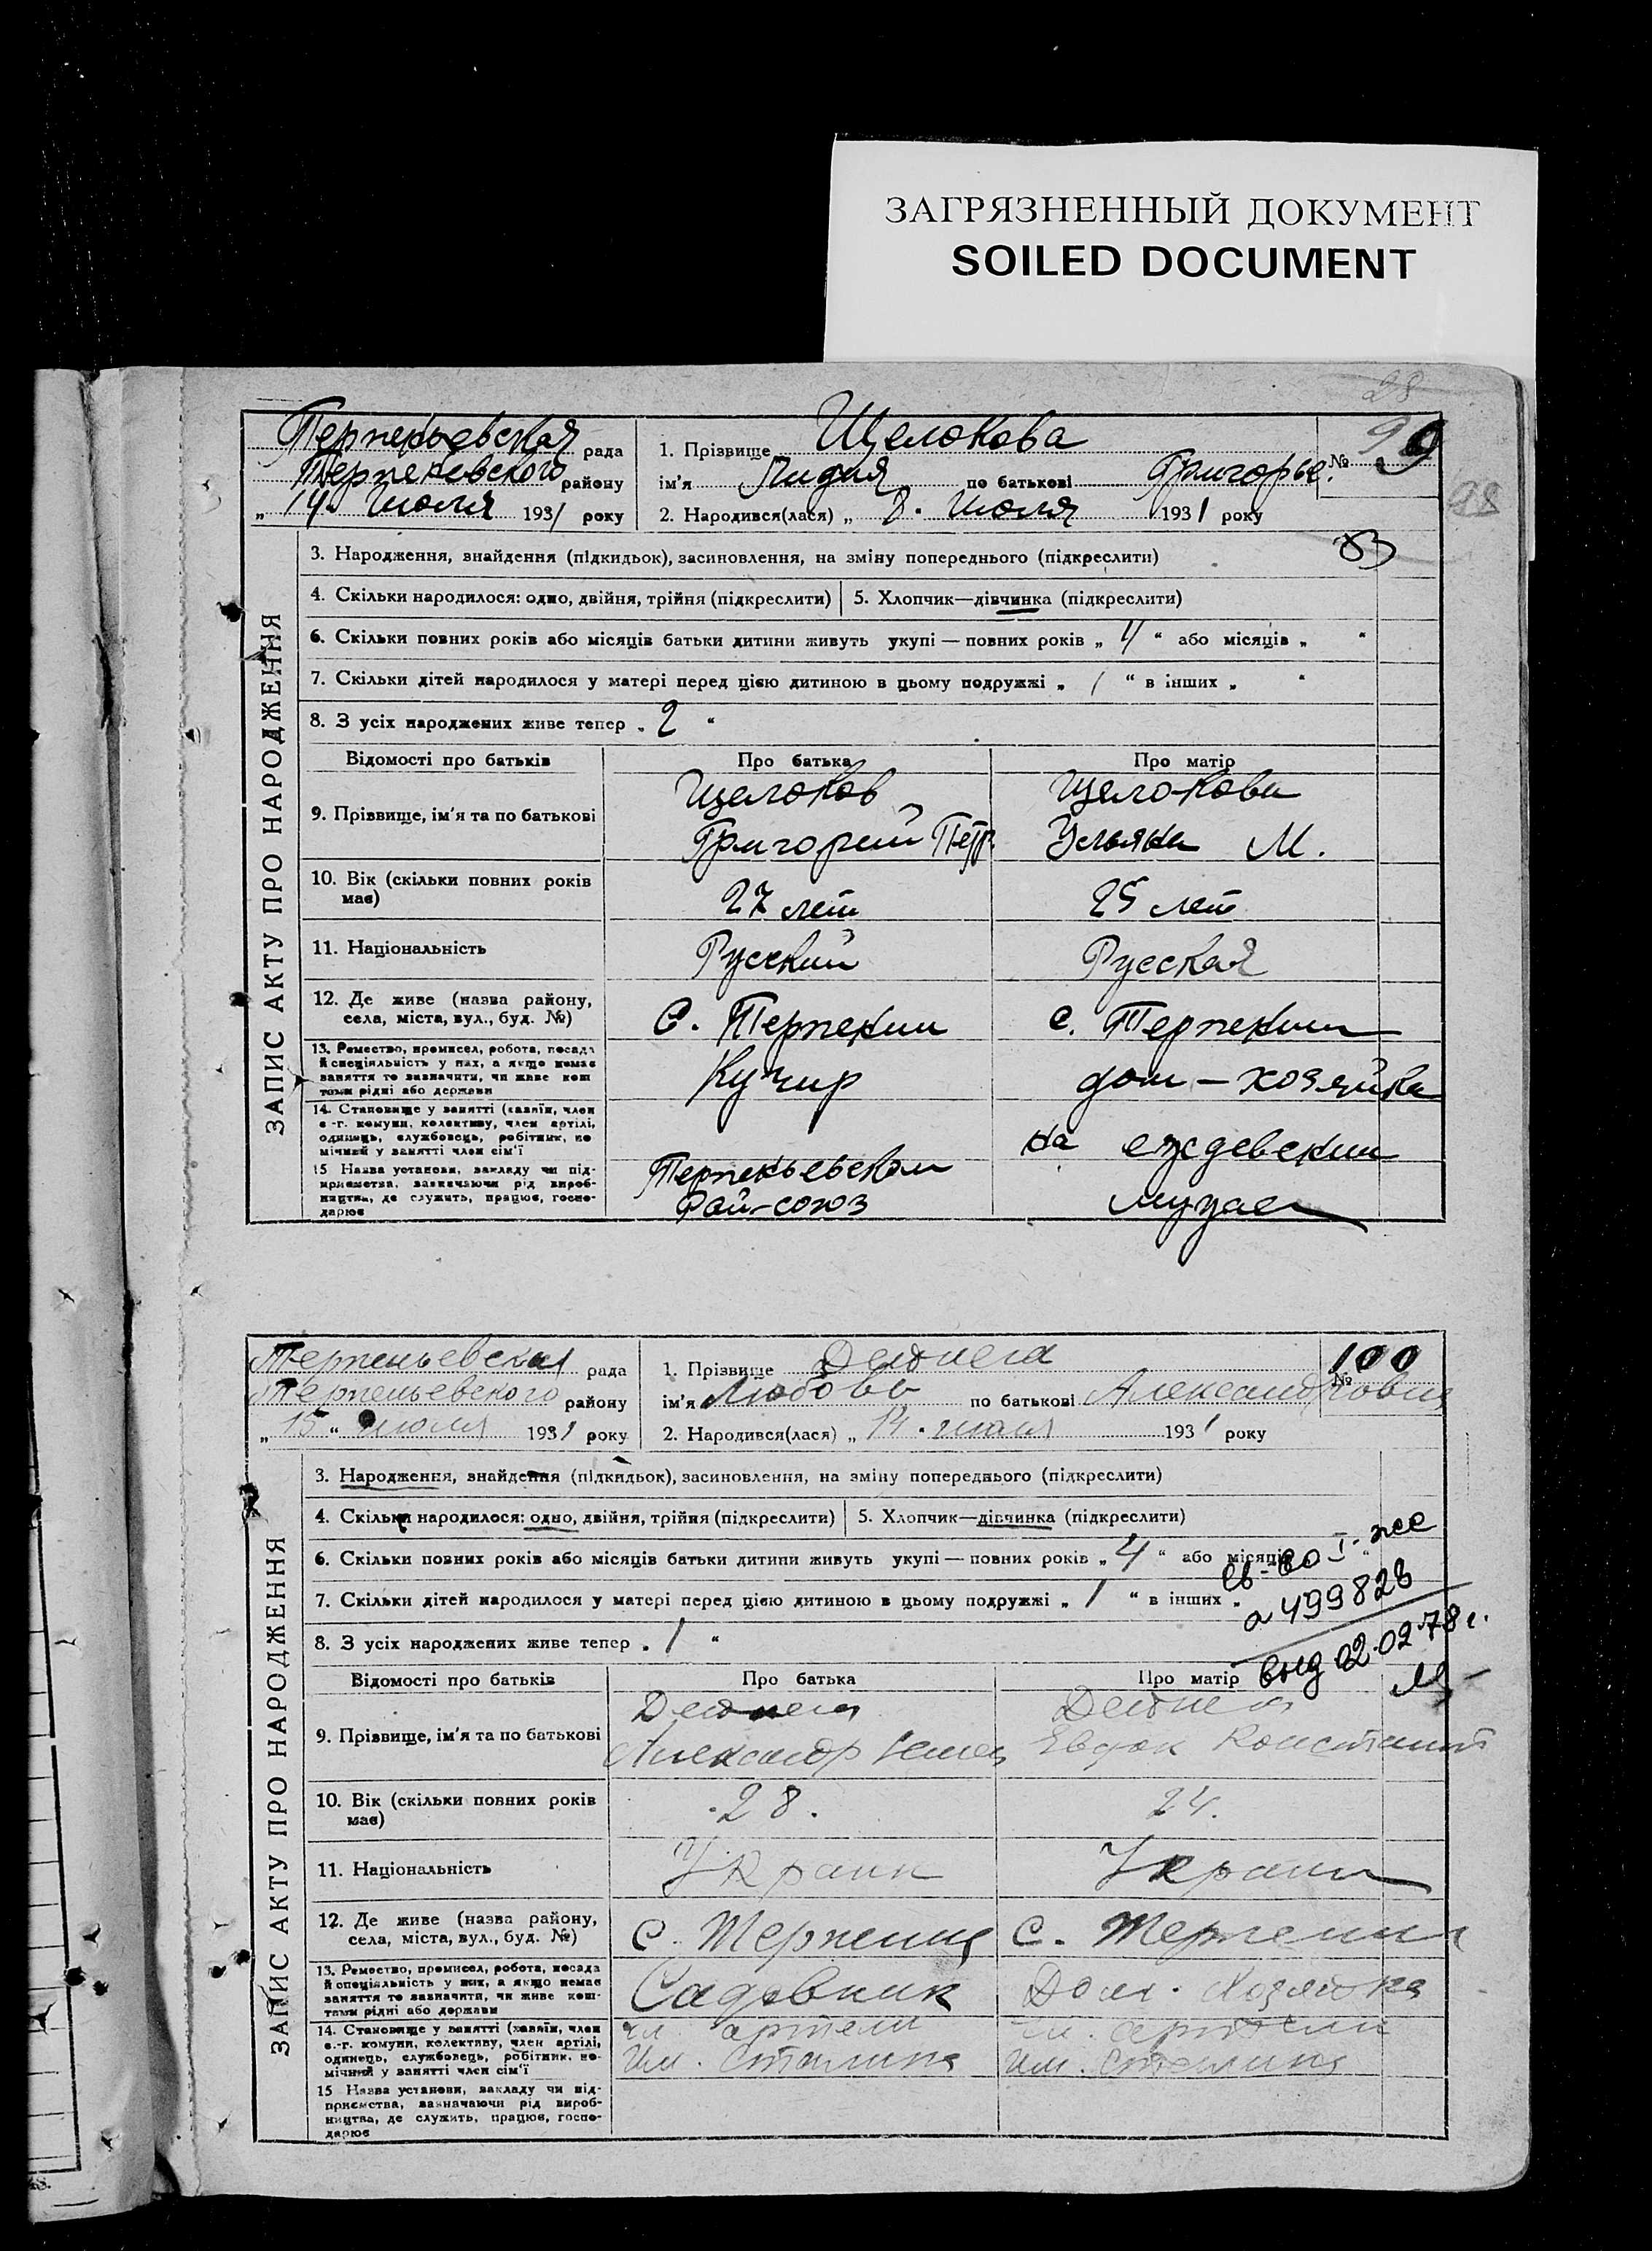 ЗАГРЯЗНЕННЫЙ ДОКУМЕНТ
SOILED DOCUMENT
28
98
ЗАПИС АКТУ ПРО НАРОДЖЕННЯ
рада
району
„ 14 " июля 1931 року
1. Прізвище Щелокова
№ 99
ім'я Лидия по батькові Григорье.
2. Народився(лася) „ 8. июля 1931 року
3. Народження, знайдення (підкидьок), засиновлення, на зміну попереднього (підкреслити)
4. Скільки народилося: одно, двійня, трійня (підкреслити)
5. Хлопчик—дівчинка (підкреслити)
6. Скільки повних років або місяців батьки дитини живуть укупі — повних років „ 4 “ або місяців „ “
7. Скільки дітей народилося у матері перед цією дитиною в цьому подружжі „ 1 “ в інших „ “
8. З усіх народжених живе тепер „ 2 “
Відомості про батьків
Про батька
Про матір
9. Прізвище, ім'я та по батькові
Щелоков
Григорий Петр
Щелокова
Ульяна М.
10. Вік (скільки повних років має)
27 лет
25 лет
11. Національність
Русский
Русская
12. Де живе (назва району, села, міста, вул., буд. №)
с. Терпение
с. Терпение
13. Ремество, промисел, робота, посада й спеціяльність у них, а якщо немає заняття то зазначити, чи живе коштами рідні або держави
Кучир
дом – хозяйка
14. Становище у занятті (хазяїн, член с.-г. комуни, колективу, член артілі, одинець, службовець, робітник, помічний у занятті член сім'ї
на
15 Назва установи, закладу чи підприємства, зазначаючи рід виробництва, де служить, працює, господарює
Рай-союз
ЗАПИС АКТУ ПРО НАРОДЖЕННЯ
рада
району
„ 15 “ июля 1931 року
1. Прізвище
№ 100
ім'я Любовь по батькові Александровна
2. Народився(лася) „ 14. июля 1931 року
3. Народження, знайдення (підкидьок), засиновлення, на зміну попереднього (підкреслити)
4. Скільки народилося: одно, двійня, трійня (підкреслити)
5. Хлопчик—дівчинка (підкреслити)
6. Скільки повних років або місяців батьки дитини живуть укупі — повних років „ 4 “ або місяців
7. Скільки дітей народилося у матері перед цією дитиною в цьому подружжі „ 1 “ в інших „
8. З усіх народжених живе тепер „ 1 “
св-во I-же
а 499828
выд 02.02.78 г.
Відомості про батьків
Про батька
Про матір
9. Прізвище, ім'я та по батькові
Александр
Евдок Констант
10. Вік (скільки повних років має)
28.
24.
11. Національність
Украин
Украин
12. Де живе (назва району, села, міста, вул., буд. №)
с. Терпение
с. Терпение
13. Ремество, промисел, робота, посада й спеціяльність у них, а якщо немає заняття то зазначити, чи живе коштами рідні або держави
Садовник
Дом. Хозяйка
14. Становище у занятті (хазяїн, член с.-г. комуни, колективу, член артілі, одинець, службовець, робітник, помічний у занятті член сім'ї
чл. артели
им. Сталина
чл. артели
им. Сталина
15 Назва установи, закладу чи підприємства, зазначаючи рід виробництва, де служить, працює, господарює